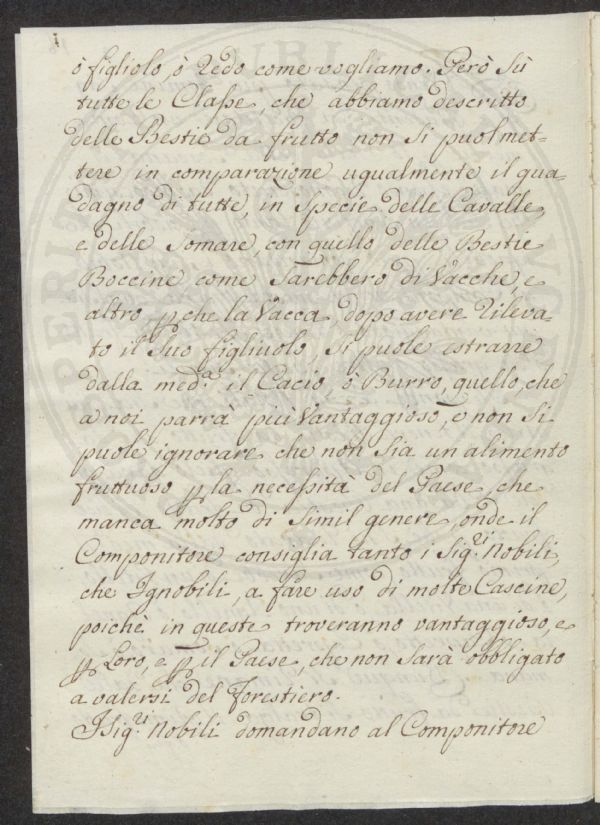 ò figliolo, ò Redo come vogliamo. Però sù
tutte le Classe, che abbiamo descritto
delle Bestie da frutto non si puol met-
tere in comparazione ugualmente il gua-
dagno di tutte, in specie delle Cavalle,
e delle Somare, con quello delle Bestie
Boccine come sarebbero di Vacche, e
altro, p che la Vacca, dopo avere rileva-
to il suo figliuolo, si puole estrarre
dalla med.ª il Cacio, ò Burro, quello, che
a noi parrà più Vantaggioso, e non si
puole ignorare che non sia un alimento
fruttuoso p la necessità del Paese, che
manca molto di simil genere, onde il
Componitore consiglia tanto i Sig.ri Nobili,
che Ignobili, a fare uso di molte Cascine,
poichè in queste troveranno vantaggioso, e
p Loro, e p il Paese, che non sarà obbligato
a valersi del forestiero.
I Sig.ri Nobili domandano al Componitore